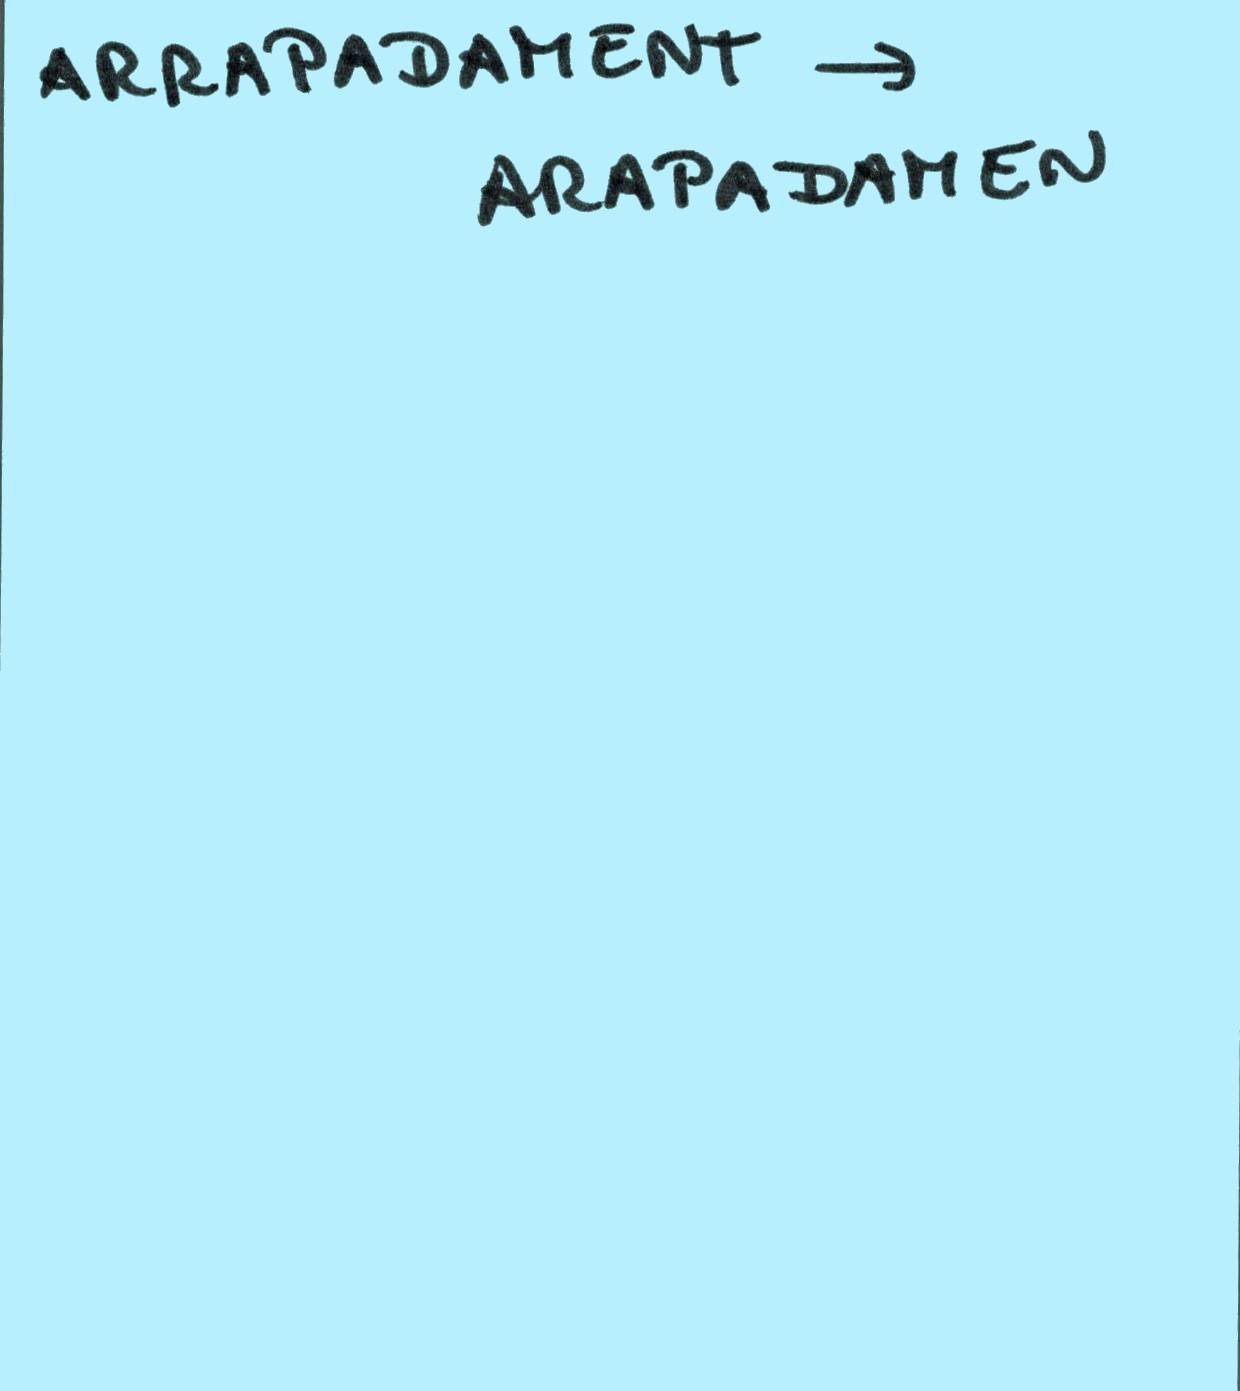 ARRAPADAMENT →
ARAPADAMEN